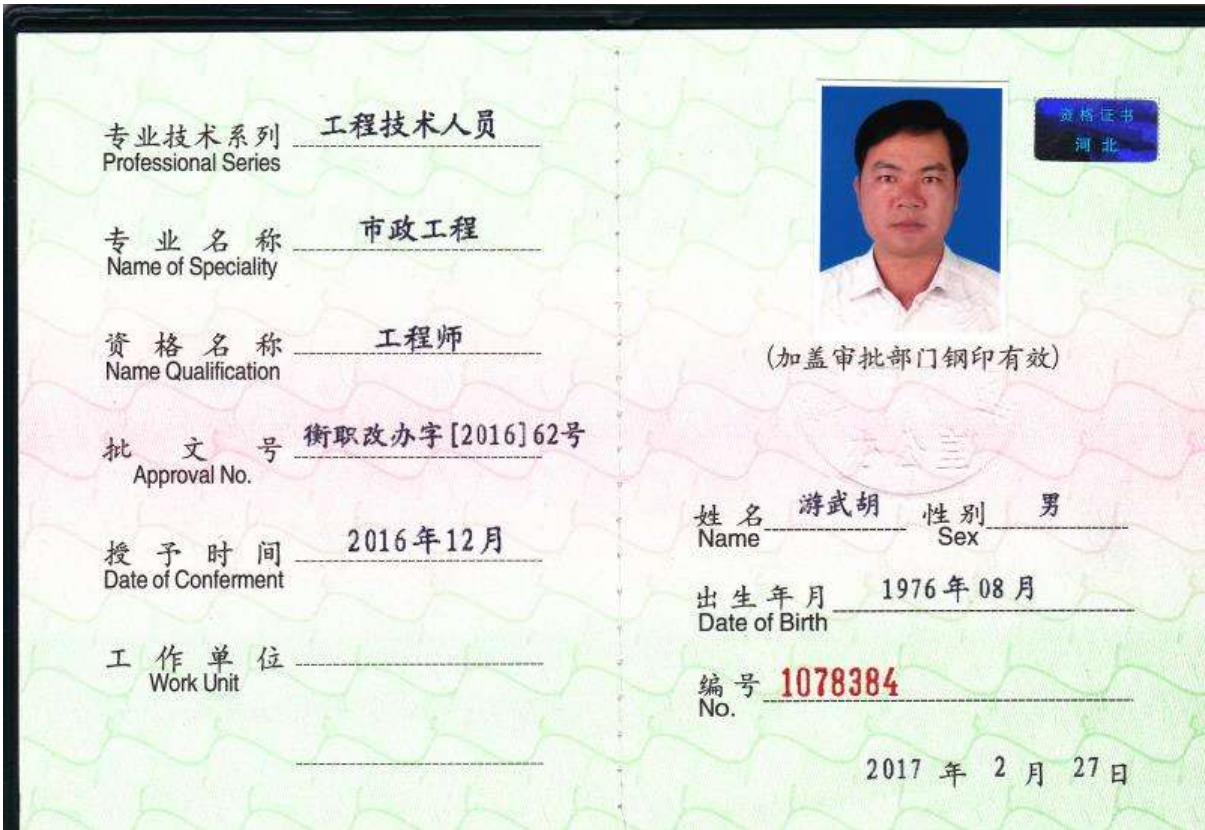 专业技术系列 工程技术人员
Professional Series
专业名称 市政工程
Name of Speciality
资格名称 工程师
Name Qualification
批文号 衡职改办字[2016]62号
Approval No.
授予时间 2016年12月
Date of Conferment
工作单位
Work Unit
资格证书
河北
(加盖审批部门钢印有效)
办公室
姓名 游武胡 性别 男
Name Sex
出生年月 1976年08月
Date of Birth
编号 1078384
No.
2017 年 2 月 27 日